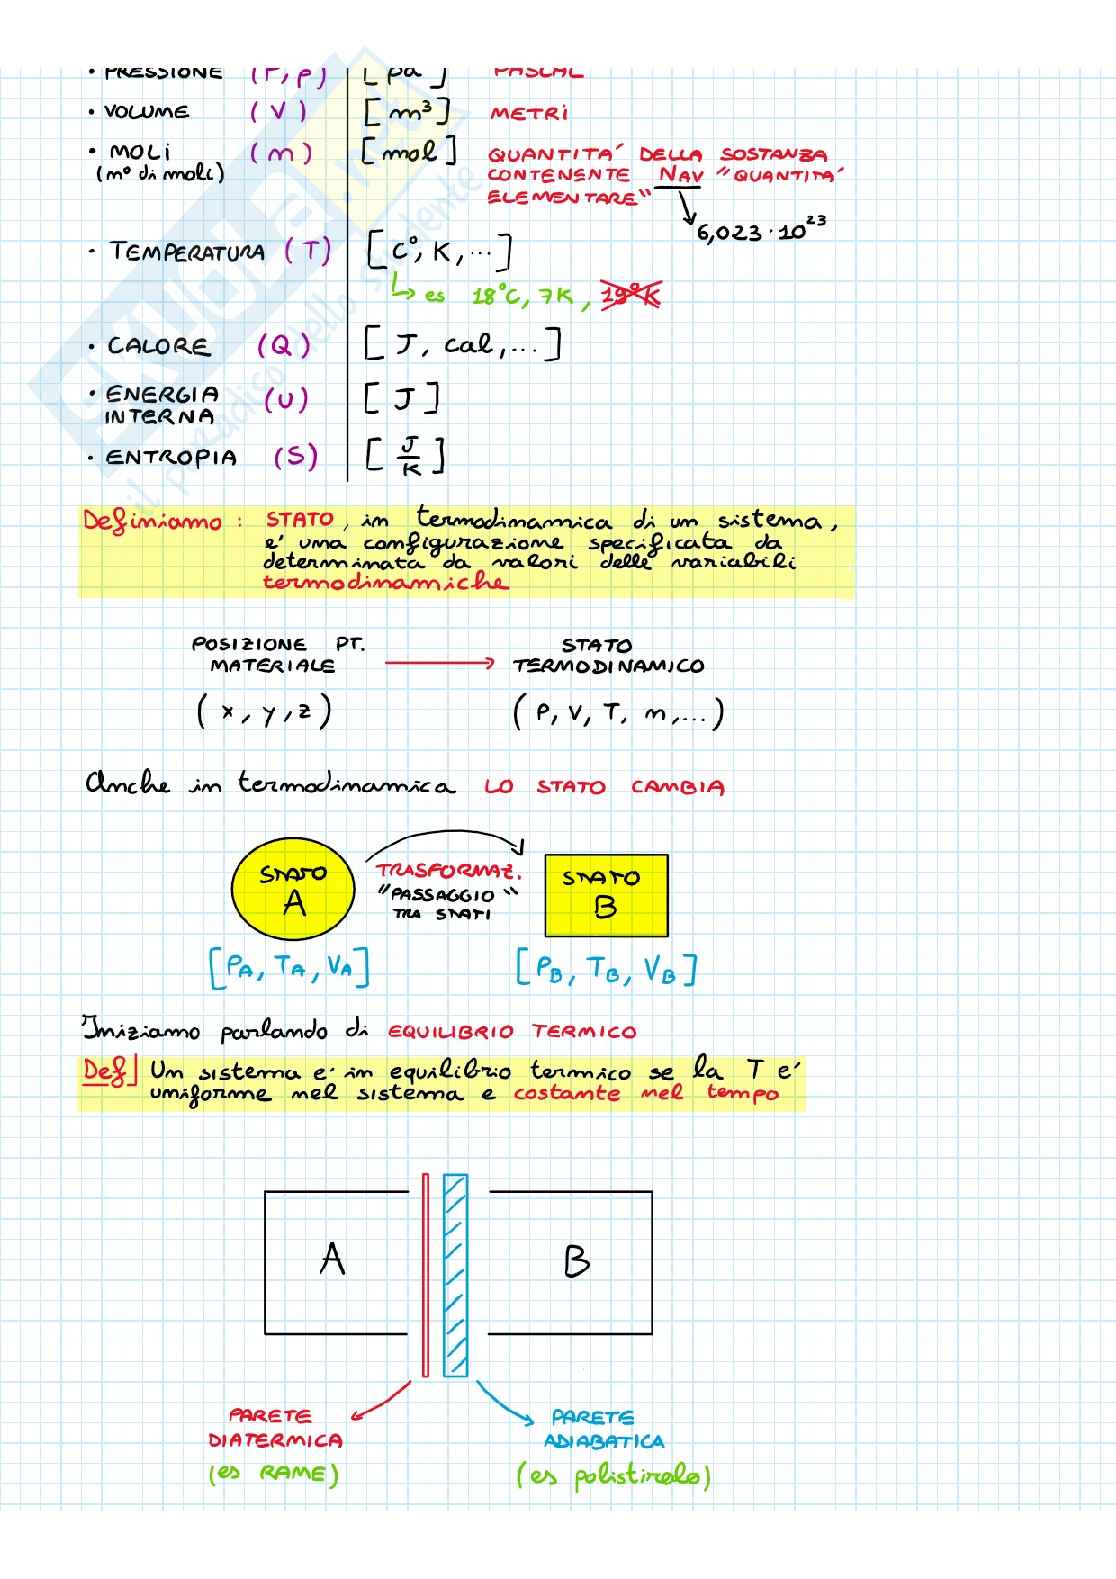 • PRESSIONE (P, p) [pa] PASCAL
• VOLUME (V) [m³] METRI
• MOLI (m) [mol] QUANTITA' DELLA SOSTANZA
(m° di moli) CONTENENTE NAV "QUANTITA'
ELEMENTARE"
6,023 · 10²³
- TEMPERATURA (T) [C°, K, ...]
es 18°C, 7K, 19°K
• CALORE (Q) [J, cal, ...]
• ENERGIA INTERNA (U) [J]
• ENTROPIA (S) [J/K]
Definiamo: STATO, in termodinamica di un sistema,
e' una configurazione specificata da
determinata da valori delle variabili
termodinamiche
POSIZIONE PT. STATO
MATERIALE TERMODINAMICO
(x, y, z) (P, V, T, m, ...)
Anche in termodinamica LO STATO CAMBIA
STATO A
TRASFORMAZ.
"PASSAGGIO"
TRA STATI
STATO B
[PA, TA, VA] [PB, TB, VB]
Iniziamo parlando di EQUILIBRIO TERMICO
Def] Un sistema e' in equilibrio termico se la T e'
uniforme nel sistema e costante nel tempo
A B
PARETE PARETE
DIATERMICA ADIABATICA
(es RAME) (es polistirolo)